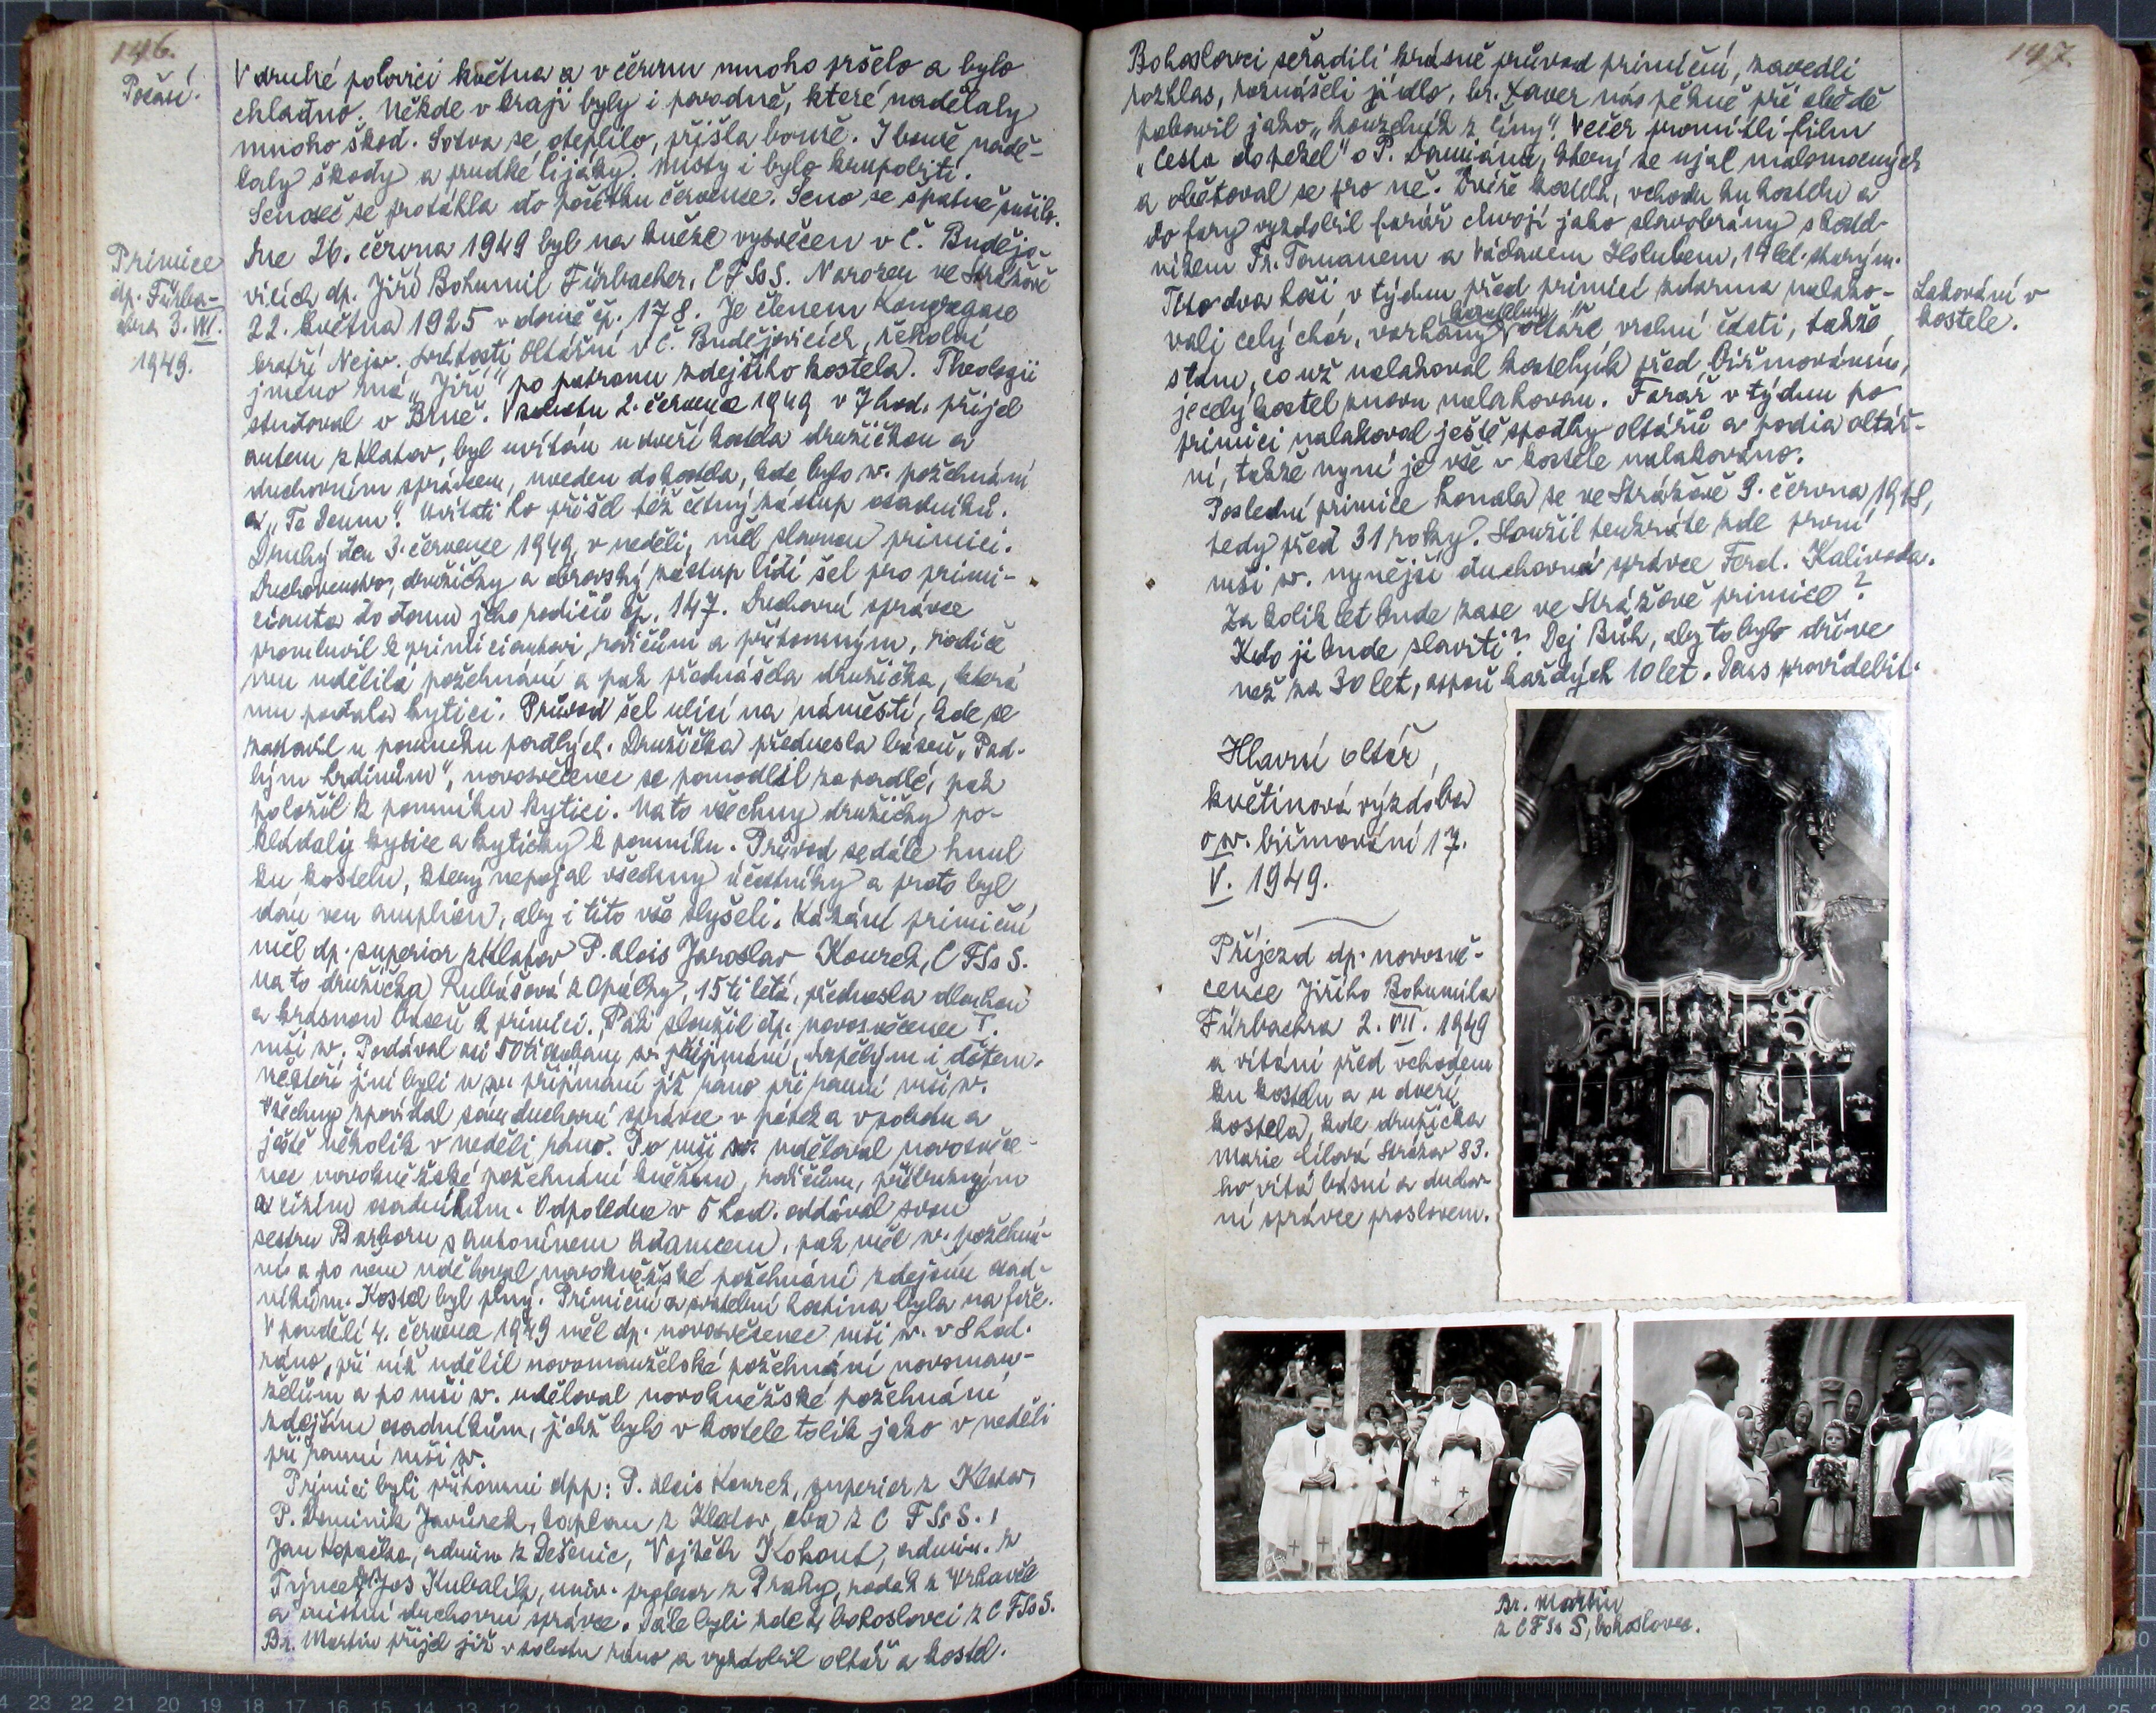 146.
Počasí.
V druhé polovici května a v červnu mnoho pršelo a bylo
chladno. Někde v kraji byly i povodně, které nadělaly
mnoho škod. Sotva se oteplilo, přišla bouře. I bouře nadě-
laly škody a prudké lijáky. Místy i bylo krupobití.
Senoseč se protáhla do počátku července. Seno se špatně sušilo.
Primice
dp. Fürba-
chra 3. VII.
1949.
Dne 26. června 1949 byl na kněze vysvěcen v Č. Budějo-
vicích dp. Jiří Bohumil Fürbacher, C F Ss S. Narozen ve Strážově
22. května 1925 v domě čp. 178. Je členem Kongregace
bratří Nejsv. Svátosti Oltářní v Č. Budějovicích, řeholní
jméno má „Jiří" po patronu zdejšího kostela. Theologii
studoval v Brně. V sobotu 2. července 1949 v 7 hod. přijel
autem z Klatov, byl uvítán u dveří kostela družičkou a
duchovním správcem, uveden do kostela, kde bylo sv. požehnání
a „Te Deum". Uvítati ho přišel též četný zástup osadníků.
Druhý den 3. července 1949, v neděli, měl slavnou primici.
Duchovenstvo, družičky a obrovský zástup lidí šel pro primi-
cianta do domu jeho rodičů čp. 147. Duchovní správce
promluvil k primiciantovi, rodičům a přítomným, rodiče
mu udělili požehnání a pak přednášela družička, která
mu podala kytici. Průvod šel ulicí na náměstí, kde se
zastavil u pomníku padlých. Družička přednesla báseň „Pad-
lým hrdinům", novosvěcenec se pomodlil za padlé, pak
položil k pomníku kytici. Na to všechny družičky po-
kládaly kytice a kytičky k pomníku. Průvod se dále hnul
ku kostelu, který nepojal všechny účastníky a proto byl
dán ven amplion, aby i tito vše slyšeli. Kázání primiční
měl dp. superior z Klatov P. Alois Jaroslav Kourek, C F Ss S.
Na to družička Kubášová z Opálky, 15ti letá, přednesla dlouhou
a krásnou báseň k primici. Pak sloužil dp. novosvěcenec I.
mši sv. Podával asi 50ti osobám sv. přijímání, dospělým i dětem.
Někteří jiní byli u sv. přijímání již ráno při ranní mši sv.
Všechny zpovídal sám duchovní správce v pátek a v sobotu a
ještě několik v neděli ráno. Po mši sv. uděloval novosvěce-
nec novokněžské požehnání kněžím, rodičům, příbuzným
a cizím osadníkům. Odpoledne v 5 hod. oddával svou
sestru Barboru s Antonínem Adamcem, pak měl sv. požehná-
ní a po něm uděloval novokněžské požehnání zdejším osad-
níkům. Kostel byl plný. Primiční a svatební hostina byla na faře.
V pondělí 4. července 1949 měl dp. novosvěcenec mši sv. v 8 hod.
ráno, při níž udělil novomanželské požehnání novoman-
želům a po mši sv. uděloval novokněžské požehnání
zdejším osadníkům, jichž bylo v kostele tolik jako v neděli
při ranní mši sv.
Primici byli přítomni dpp: P. Alois Kourek, superior z Klatov,
P. Dominik Javůrek, kaplan z Klatov, oba z C F Ss S.,
Jan Kopačka, admin. z Dešenic, Vojtěch Kohout, admin. z
Týnce, Dr. Jos Kubalík, univ. profesor z Prahy, rodák z Vrhavče
a místní duchovní správce. Dále byli zde 4 bohoslovci z C F Ss S.
Br. Martin přijel již v sobotu ráno a vyzdobil oltář a kostel.
147.
Bohoslovci seřadili krásně průvod primiční, zavedli
rozhlas, roznášeli jídlo, br. Xaver nás pěkně při obědě
pobavil jako „kouzelník z Číny". Večer promítli film
„Cesta do pekel" o P. Damiánu, který se ujal malomocných
a obětoval se pro ně. Dvéře kostela, vchodu ku kostelu a
do fary vyzdobil farář chvojí jako slavobrány s kostel-
níkem Fr. Tomanem a Václavem Holubem, 19 let. starým.
Lakování v
kostele.
Tito dva hoši v týdnu před primicí zdarma nalako-
vali celý chór, varhany, kazatelnu, oltáře, vrchní části, takže
s tím, co už nalakoval kostelník před biřmováním,
je celý kostel znovu nalakován. Farář v týdnu po
primici nalakoval ještě spodky oltářů a podia oltář-
ní, takže nyní je vše v kostele nalakováno.
Poslední primice konala se ve Strážově 9. června 1918,
tedy před 31 roky. Sloužil tenkráte zde první
mši sv. nynější duchovní správce Ferd. Kalivoda.
Za kolik let bude zase ve Strážově primice?
Kdo ji bude slaviti? Dej Bůh, aby to bylo dříve
než za 30 let, aspoň každých 10 let. Deus providebit.
Hlavní oltář,
květinová výzdoba
o sv. biřmování 17.
V. 1949.
Příjezd dp. novosvě-
cence Jiřího Bohumila
Fürbachra 2. VII. 1949
a vítání před vchodem
ku kostelu a u dveří
kostela, kde družička
Marie Cílová Strážov 83.
ho vítá básní a duchov-
ní správce proslovem.
Br. Martin
z C F Ss S, bohoslovec.